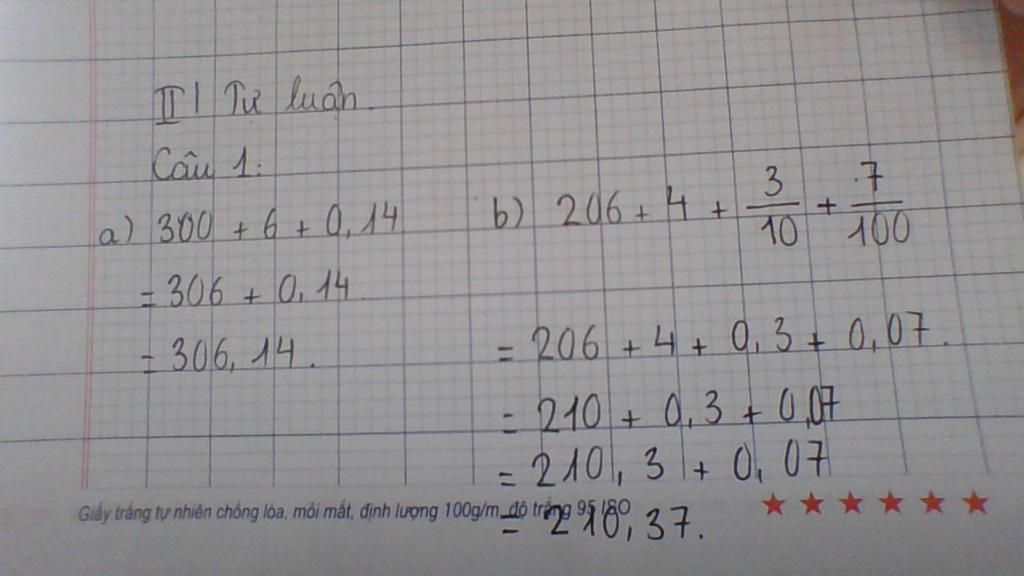 II / Tự luận.
Câu 1:
a) 300 + 6 + 0,14
= 306 + 0,14
= 306,14.
b) 206 + 4 + 3/10 + 7/100
= 206 + 4 + 0,3 + 0,07.
= 210 + 0,3 + 0,07
= 210,3 + 0,07
= 210,37.
Giấy trắng tự nhiên chống lóa, mỏi mắt, định lượng 100g/m, độ trắng 95